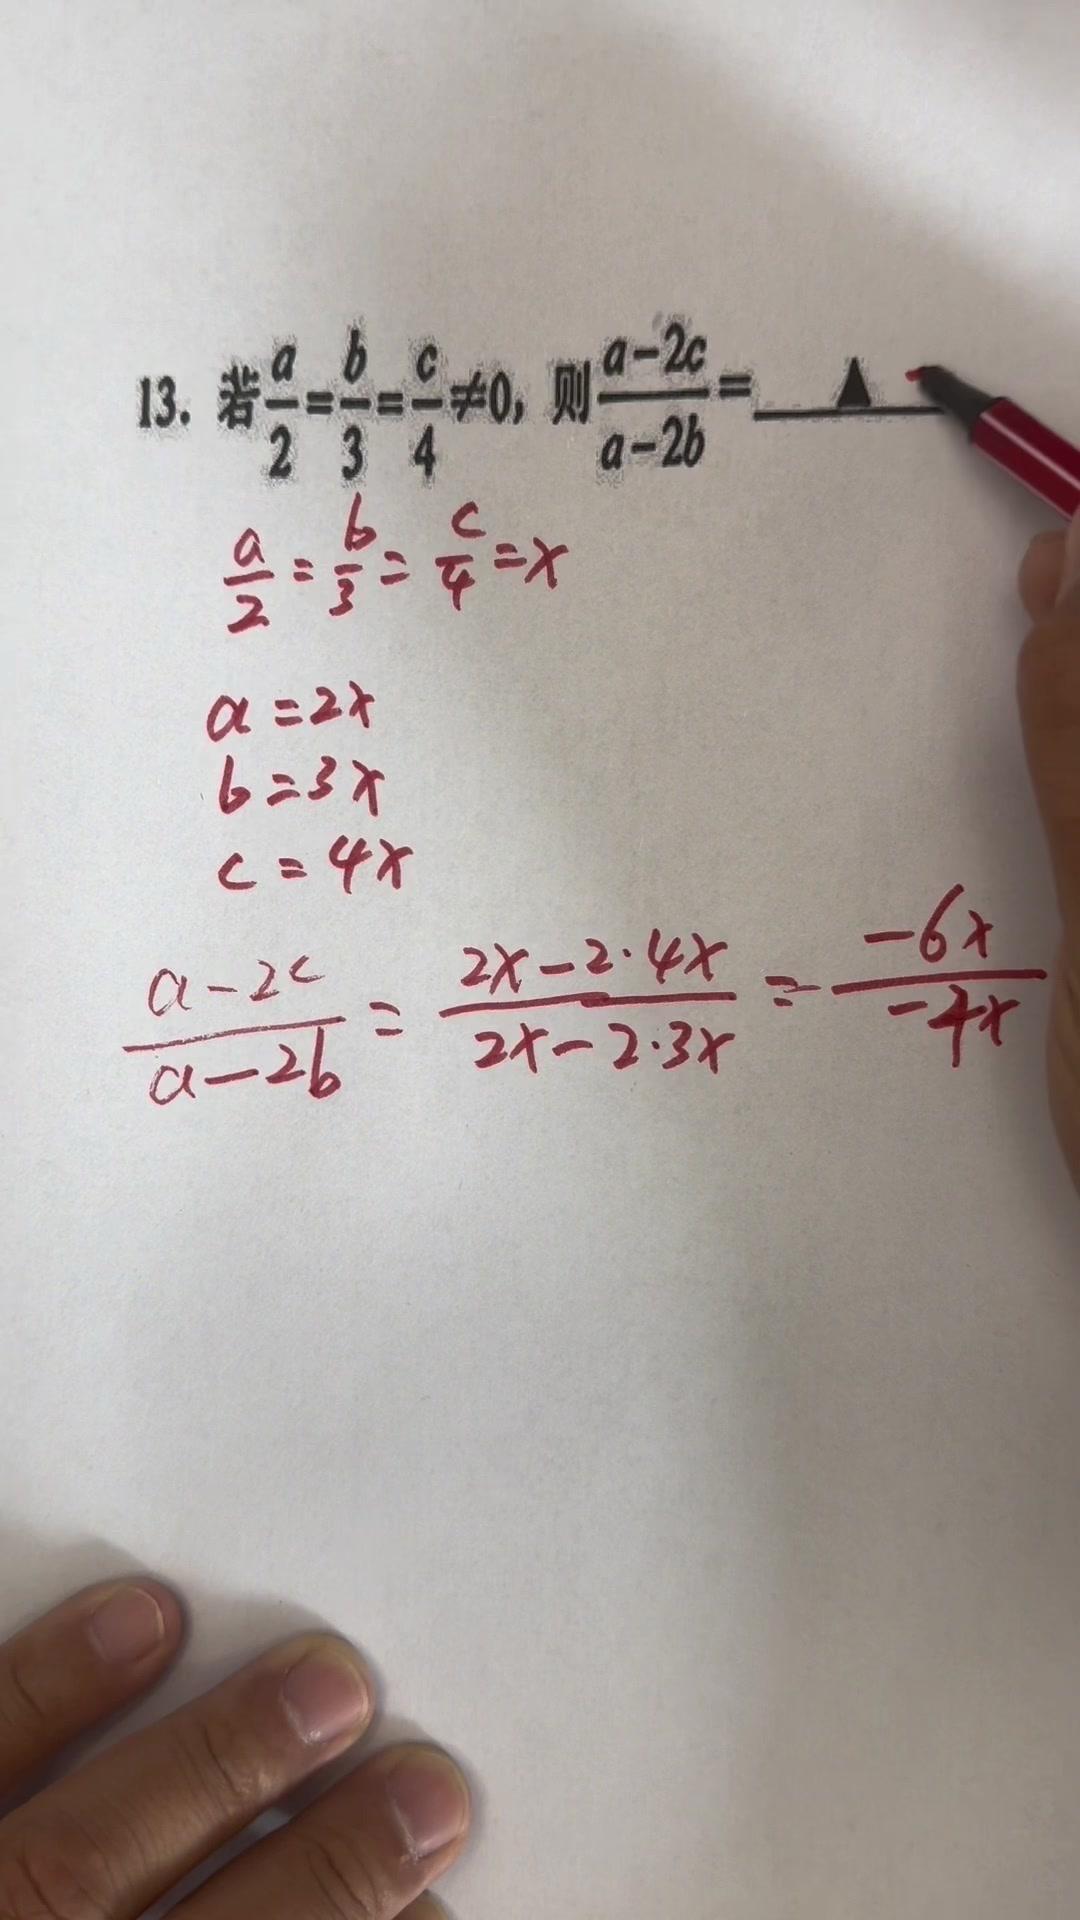 13. 若a/2=b/3=c/4≠0, 则(a-2c)/(a-2b)=____▲____
a/2=b/3=c/4=x
a=2x
b=3x
c=4x
(a-2c)/(a-2b)=(2x-2·4x)/(2x-2·3x)=(-6x)/(-4x)